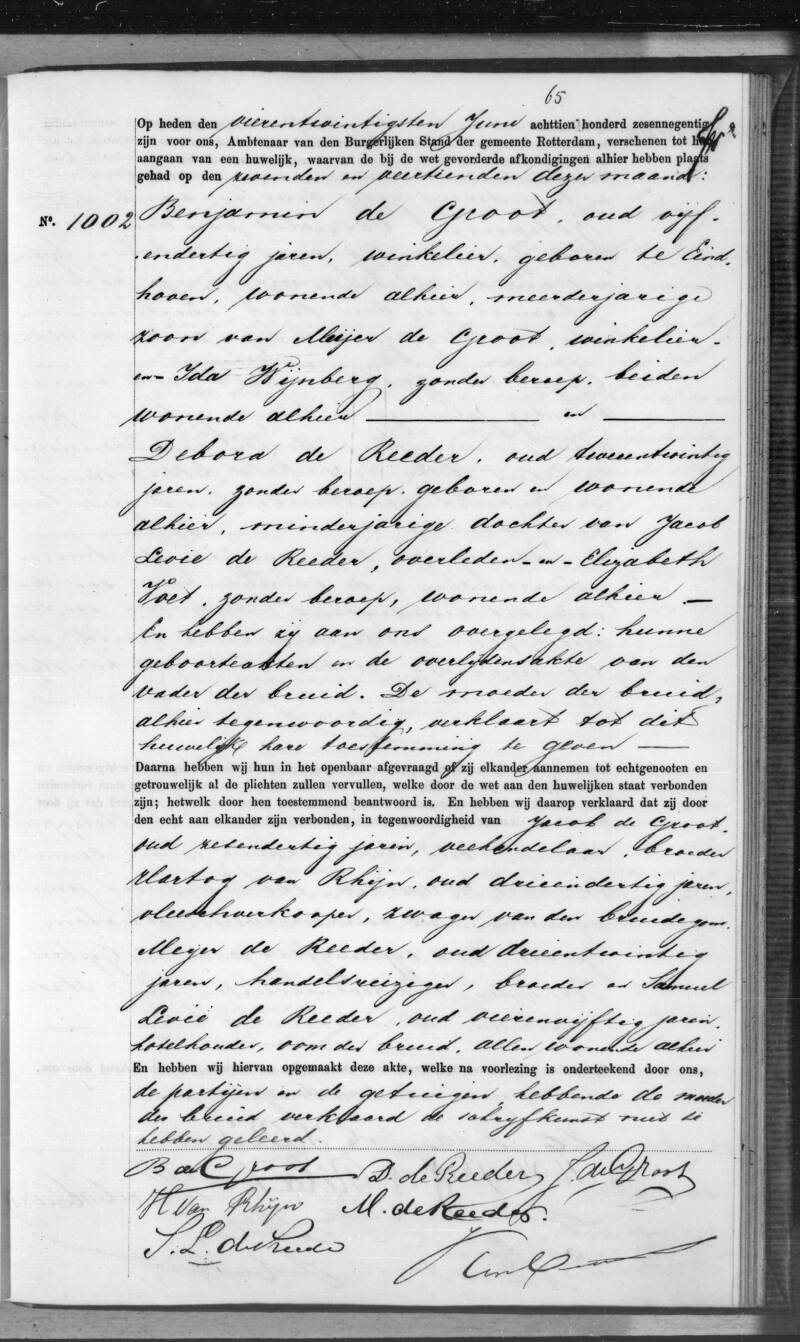 65
Op heden den vierentwintigsten Juni achttien honderd zesennegentig
zijn voor ons, Ambtenaar van den Burgerlijken Stand der gemeente Rotterdam, verschenen tot het
aangaan van een huwelijk, waarvan de bij de wet gevorderde afkondigingen alhier hebben plaats
gehad op den zevenden en veertienden dezer maand:
No. 1002 Benjamin de Groot, oud vijf-
endertig jaren, winkelier, geboren te Eind-
hoven, wonende alhier, meerderjarige
zoon van Meijer de Groot, winkelier
en Ida Wijnberg, zonder beroep, beiden
wonende alhier en
Debora de Reeder, oud tweeentwintig
jaren, zonder beroep, geboren en wonende
alhier, minderjarige dochter van Jacob
Levie de Reeder, overleden en Elizabeth
Voet, zonder beroep, wonende alhier
En hebben zij aan ons overgelegd: hunne
geboorteakten en de overlijdensakte van den
vader der bruid. De moeder der bruid,
alhier tegenwoordig, verklaart tot dit
huwelijk hare toestemming te geven
Daarna hebben wij hun in het openbaar afgevraagd of zij elkander aannemen tot echtgenooten en
getrouwelijk al de plichten zullen vervullen, welke door de wet aan den huwelijken staat verbonden
zijn; hetwelk door hen toestemmend beantwoord is. En hebben wij daarop verklaard dat zij door
den echt aan elkander zijn verbonden, in tegenwoordigheid van Jacob de Groot,
oud zesendertig jaren, veehandelaar, broeder
Hartog van Rhijn, oud drieendertig jaren,
vleeschverkooper, zwager van den bruidegom,
Meyer de Reeder, oud drieentwintig
jaren, handelsreiziger, broeder en Samuel
Levie de Reeder, oud vierenvijftig jaren,
hotelhouder, oom der bruid, allen wonende alhier
En hebben wij hiervan opgemaakt deze akte, welke na voorlezing is onderteekend door ons,
de partijen en de getuigen, hebbende de moeder
der bruid verklaard de schryfkunst niet te
hebben geleerd.
B de Groot D. de Reeder J. de Groot
H van Rhijn M. de Reeder.
S. L. de Reeder